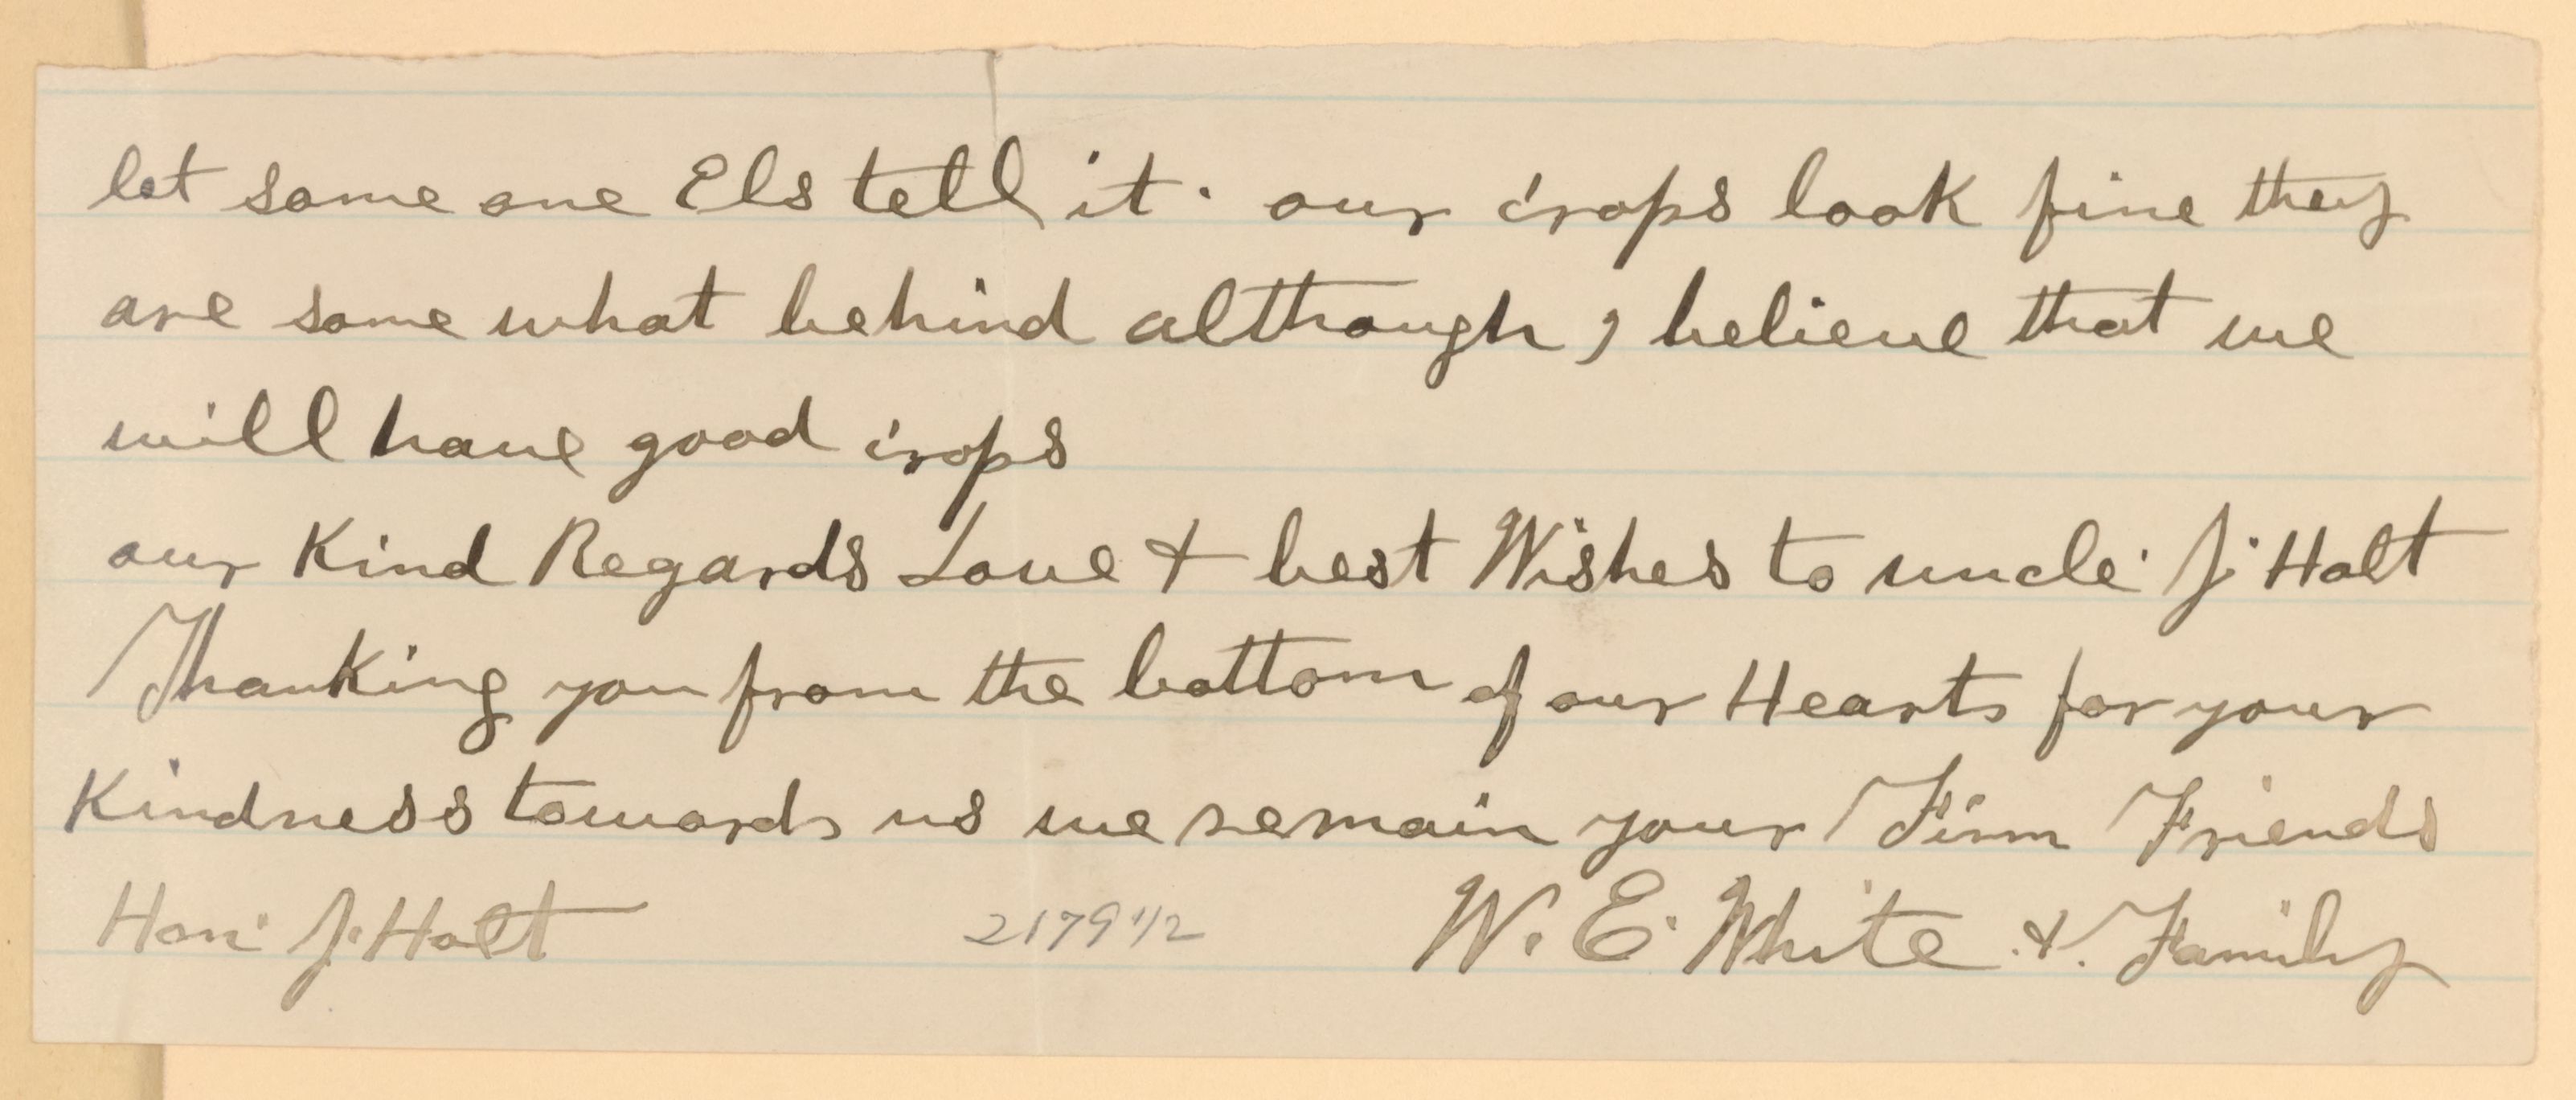 let some one Els tell it. our crops look fine they
are some what behind although, believe that we
will have good crops
our Kind Regards Love & best Wishes to uncle. J. Holt
Thanking you from the bottom of our Hearts for your
Kindness towards us we remain your Firm Friends
Hon. J. Holt 2179 1/2 W. E. White & Family